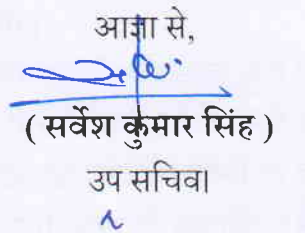 आज्ञा से,
( सर्वेश कुमार सिंह )
उप सचिव।